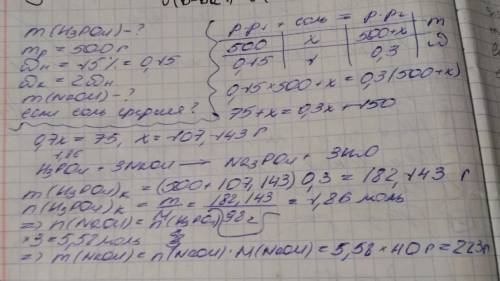 m(H₃PO₄)-?
mр = 500 г
ωн = 15% = 0,15
ωк = 2ωн
m(NaOH)-?
если соль средняя?
р.р1 + соль = р.р2
500 | x | 500+x | m
0,15 | 1 | 0,3 | ω
0,15×500+x = 0,3(500+x)
75+x = 0,3x+150
0,7x = 75, x = 107,143 г
1,86
H₃PO₄ + 3NaOH → Na₃PO₄ + 3H₂O
m(H₃PO₄)к = (500+107,143)0,3 = 182,143 г
n(H₃PO₄)к = m/M = 182,143/98 = 1,86 моль
⇒ n(NaOH) = n(H₃PO₄)
×3 = 5,58 моль
⇒ m(NaOH) = n(NaOH)·M(NaOH) = 5,58×40г = 223г